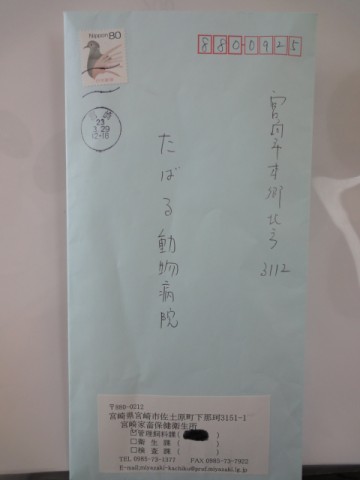 Nippon 80
23
3.29
12-18
8800925
宮崎市本郷北方
3112
たばる動物病院
〒880-0212
宮崎県宮崎市佐土原町下那珂3151-1
宮崎家畜保健衛生所
管理飼料課(
□衛生課(
□検査課(
TEL 0985-73-1377 FAX 0985-73-7922
E-mail:miyazaki-kachiku@pref.miyazaki.lg.jp